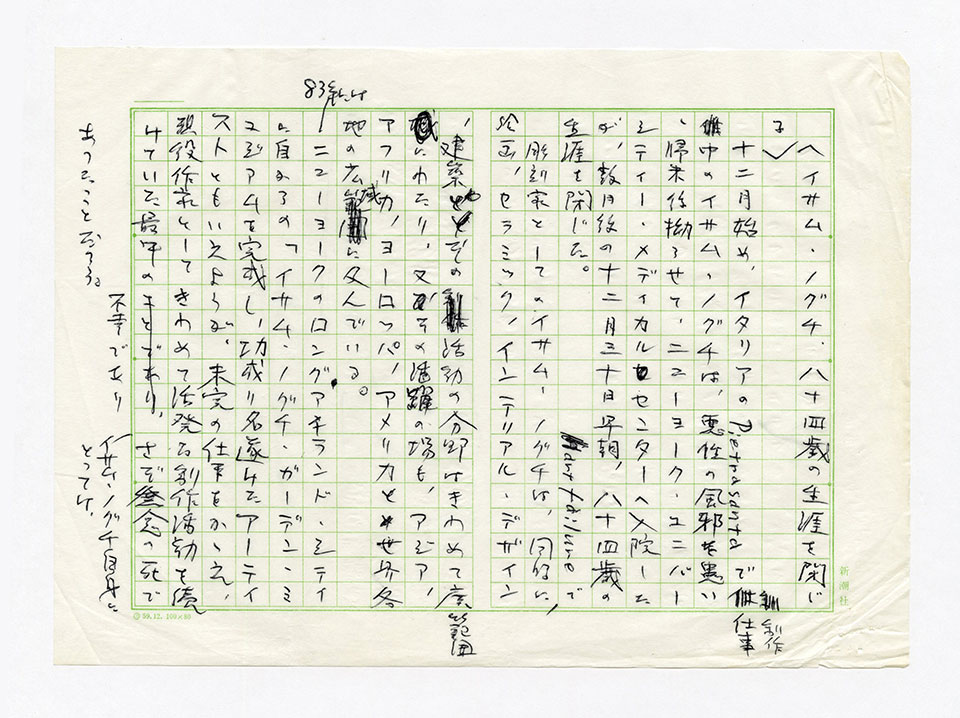 へイサム・ノグチ、八十四歳の生涯を閉じ
る
十二月始め、イタリアのPietrasantaで
創作
仕事
中のイサム・ノグチは、悪性の風邪を患い
、帰米後拗らせて、ニューヨーク・ユニバー
シティー・メディカルセンターへ入院した
が、数日後の十二月三十日早朝、八十四歳の
生涯を閉じた。
Hart failureで
彫刻家としてのイサム・ノグチは、同時に、
絵画、セラミック、インテリアル・デザイン
、建築などその活動の分野はきわめて広
範囲
にわたり、又その活躍の場も、アジア、
アフリカ、ヨーロッパ、アメリカと世界各
地の広域に及んでいる。
83年には
ニューヨークのロングアイランド・シティ
に自からの「イサム・ノグチ・ガーデン・ミ
ュジアムを完成し、功成り名遂げたアーティ
ストともいえようが、未完の仕事をかゝえ、
現役作家としてきわめて活発な創作活動を続
けていた最中のことであり、さぞ無念の死で
不幸であり
イサム・ノグチ自身に
とっては、
あったことだろう。
新潮社
59.12. 100×80